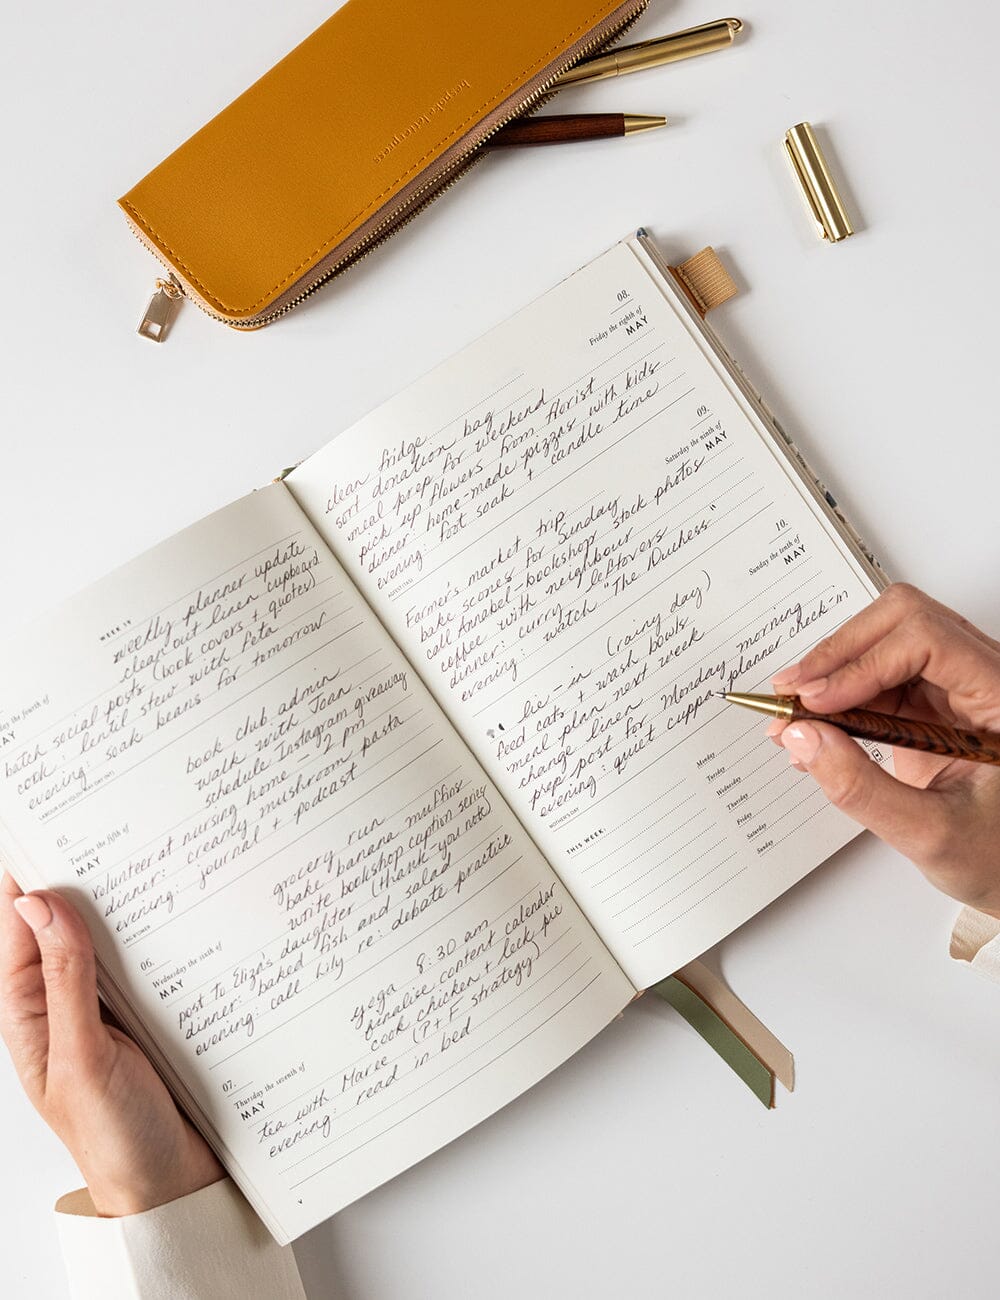 bespoke letterpress
WEEK 19
weekly planner update
clean out linen cupboard
batch social posts (book covers + quotes)
cook: lentil stew with feta
evening: soak beans for tomorrow
LABOUR DAY (QLD), MAY DAY (NT)
05.
Tuesday the fifth of
MAY
book club admin
walk with Joan
schedule Instagram giveaway
volunteer at nursing home - 2 pm
dinner: creamy mushroom pasta
evening: journal + podcast
06.
Wednesday the sixth of
MAY
grocery run
bake banana muffins
write bookshop caption series
post to Eliza's daughter (thank you note)
dinner: baked fish and salad
evening: call Lily re: debate practice
07.
Thursday the seventh of
MAY
yoga 8:30 am
finalise content calendar
cook chicken + leek pie
tea with Maree (P+F strategy)
evening: read in bed
08.
Friday the eighth of
MAY
clean fridge
sort donation bag
meal prep for weekend
pick up flowers from florist
dinner: home-made pizzas with kids
evening: foot soak + candle time
09.
Saturday the ninth of
MAY
Farmer's market trip
bake scones for Sunday
call Annabel - bookshop stock photos
coffee with neighbour
dinner: curry leftovers
evening: watch "The Duchess"
10.
Sunday the tenth of
MAY
lie-in (rainy day)
feed cats + wash bowls
meal plan next week
change linen
prep post for Monday morning
evening: quiet cuppa + planner check-in
MOTHER'S DAY
THIS WEEK:
Monday
Tuesday
Wednesday
Thursday
Friday
Saturday
Sunday